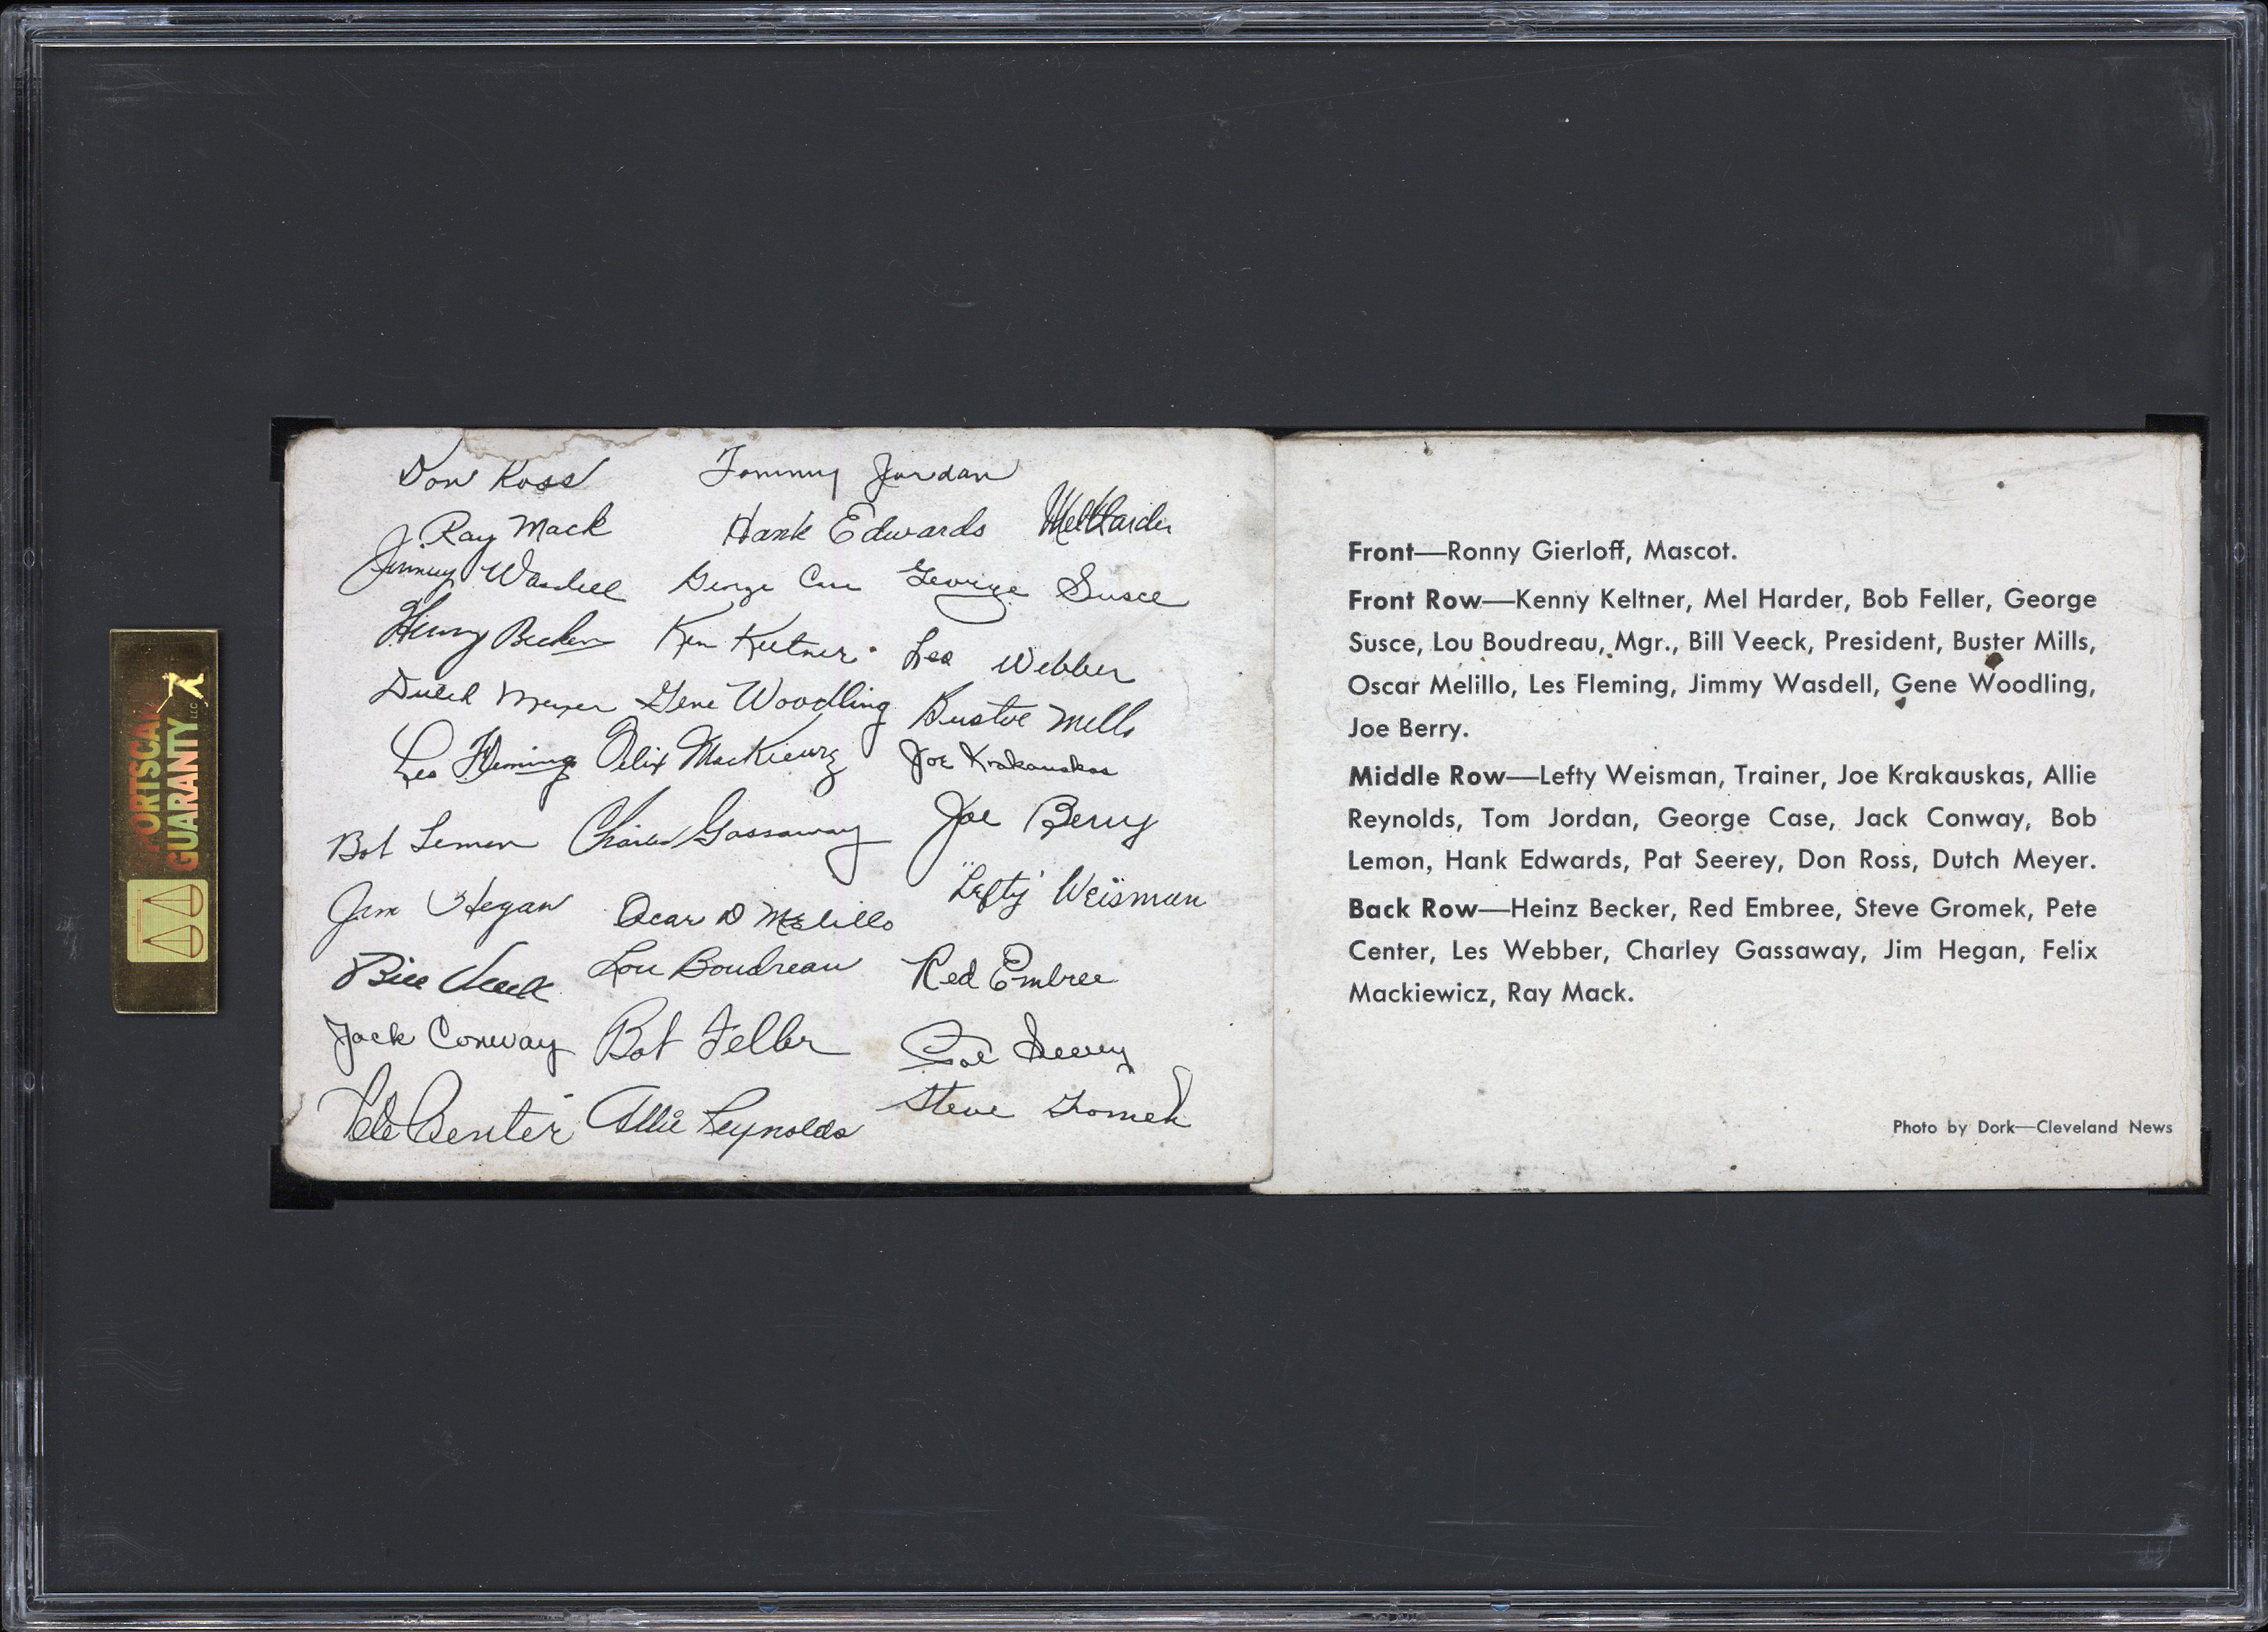 SPORTSCARD
GUARANTY LLC
Don Ross Tommy Jordan
J. Ray Mack Hank Edwards Mel Harder
Jimmy Wasdell George Case George Susce
Henry Becker Ken Keltner Les Webber
Dutch Meyer Gene Woodling Buster Mills
Les Fleming Felix Mackiewicz Joe Krakauskas
Bob Lemon Charles Gassaway Joe Berry
Jim Hegan Oscar D Melillo "Lefty" Weisman
Bill Veeck Lou Boudreau Red Embree
Jack Conway Bob Feller Pat Seerey
Pete Center Allie Reynolds Steve Gromek
Front—Ronny Gierloff, Mascot.
Front Row—Kenny Keltner, Mel Harder, Bob Feller, George
Susce, Lou Boudreau, Mgr., Bill Veeck, President, Buster Mills,
Oscar Melillo, Les Fleming, Jimmy Wasdell, Gene Woodling,
Joe Berry.
Middle Row—Lefty Weisman, Trainer, Joe Krakauskas, Allie
Reynolds, Tom Jordan, George Case, Jack Conway, Bob
Lemon, Hank Edwards, Pat Seerey, Don Ross, Dutch Meyer.
Back Row—Heinz Becker, Red Embree, Steve Gromek, Pete
Center, Les Webber, Charley Gassaway, Jim Hegan, Felix
Mackiewicz, Ray Mack.
Photo by Dork—Cleveland News